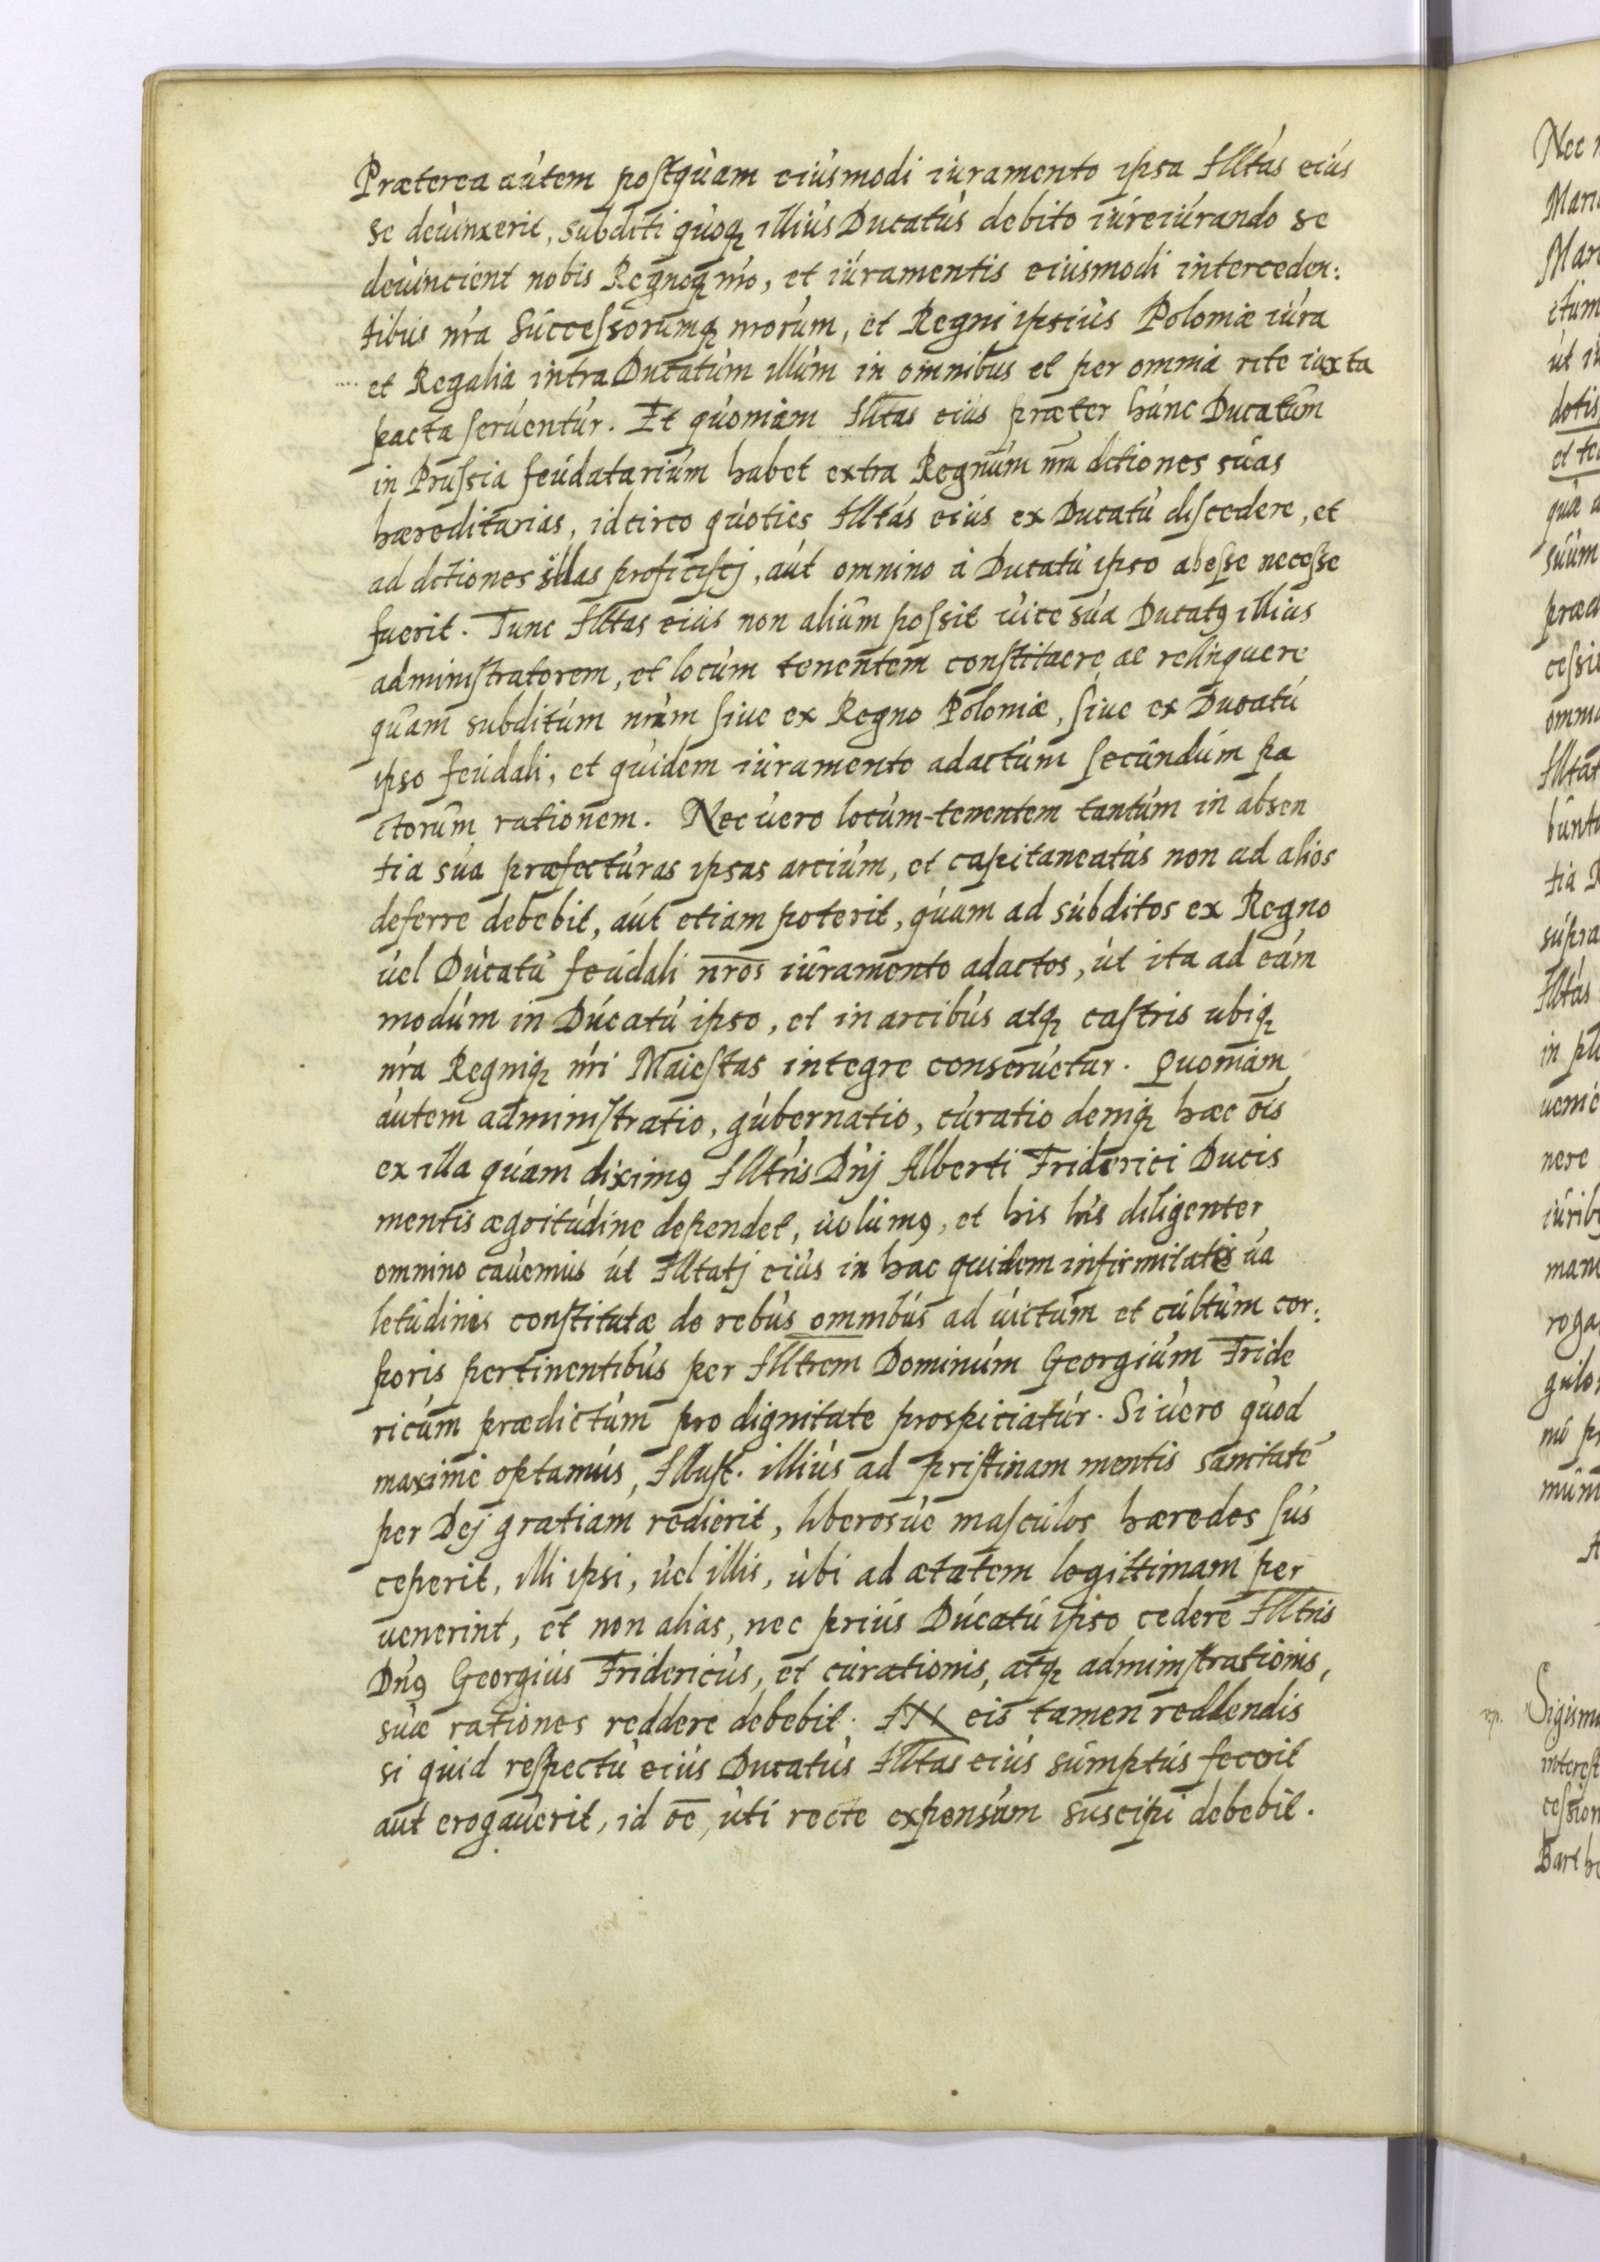 Præterea autem postquam eiusmodi iuramento ipsa Illtas eius
se deuinxerit, subditi quoq illius Ducatus debito iureiurando se
deuincient nobis Regnoq nro, et iuramentis eiusmodi interceden:
tibus nra Successorumq nrorum, et Regni ipsius Poloniæ iura
et Regalia intra Ducatum illum in omnibus et per omnia rite iuxta
pacta seruentur. Et quoniam Illtas eius præter hunc Ducatum
in Prussia feudatarium habet extra Regnum nrm ditiones suas
hæreditarias, idcirco quoties Illtas eius ex Ducatu discedere, et
ad ditiones illas proficiscj, aut omnino a Ducatu ipso abesse necesse
fuerit. Tunc Illtas eius non alium possit uice sua Ducatq illius
administratorem, et locum tenentem constituere ac relinquere
quam subditum nrum siue ex Regno Poloniæ, siue ex Ducatu
ipso feudali, et quidem iuramento adactum secundum pa
ctorum rationem. Nec uero locum-tenentem tantum in absen
tia sua præfecturas ipsas arcium, et capitaneatus non ad alios
deferre debebit, aut etiam poterit, quam ad subditos ex Regno
uel Ducatu feudali nros iuramento adactos, ut ita ad eam
modum in Ducatu ipso, et in arcibus atq castris ubiq
nra Regniq nri Maiestas integre conseruetur. Quoniam
autem administratio, gubernatio, curatio deniq hæc ois
ex illa quam diximq Illtris Dnj Alberti Friderici Ducis
mentis ægritudine dependet, uolumq, et his lris diligenter
omnino cauemus ut Illtatj eius in hac quidem infirmitatis ua
letudinis constitutæ de rebus omnibus ad uictum et cultum cor:
poris pertinentibus per Illtrem Dominum Georgium Fride
ricum prædictum pro dignitate prospiciatur. Si uero quod
maxime optamus, Illust. illius ad pristinam mentis sanitatē
per Dej gratiam redierit, liberosue masculos hæredes sus
ceperit, illi ipsi, uel illis, ubi ad ætatem legittimam per
uenerint, et non alias, nec prius Ducatu ipso cedere Illtris
Dnq Georgius Fridericus, et curationis, atq administrationis,
suæ rationes reddere debebit. In eis tamen reddendis
si quid respectu eius Ducatus Illtas eius sumptus fecerit
aut erogauerit, id oē, uti recte expensum suscipi debebit.